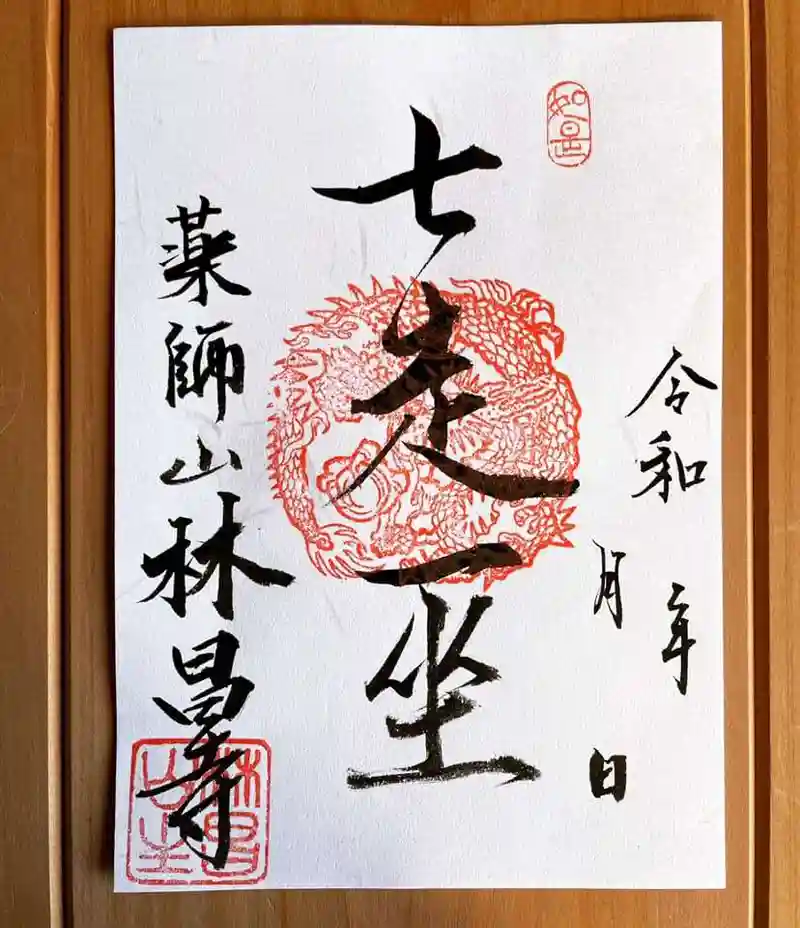 如是
令和 年
月 日
七走一坐
薬師山林昌寺